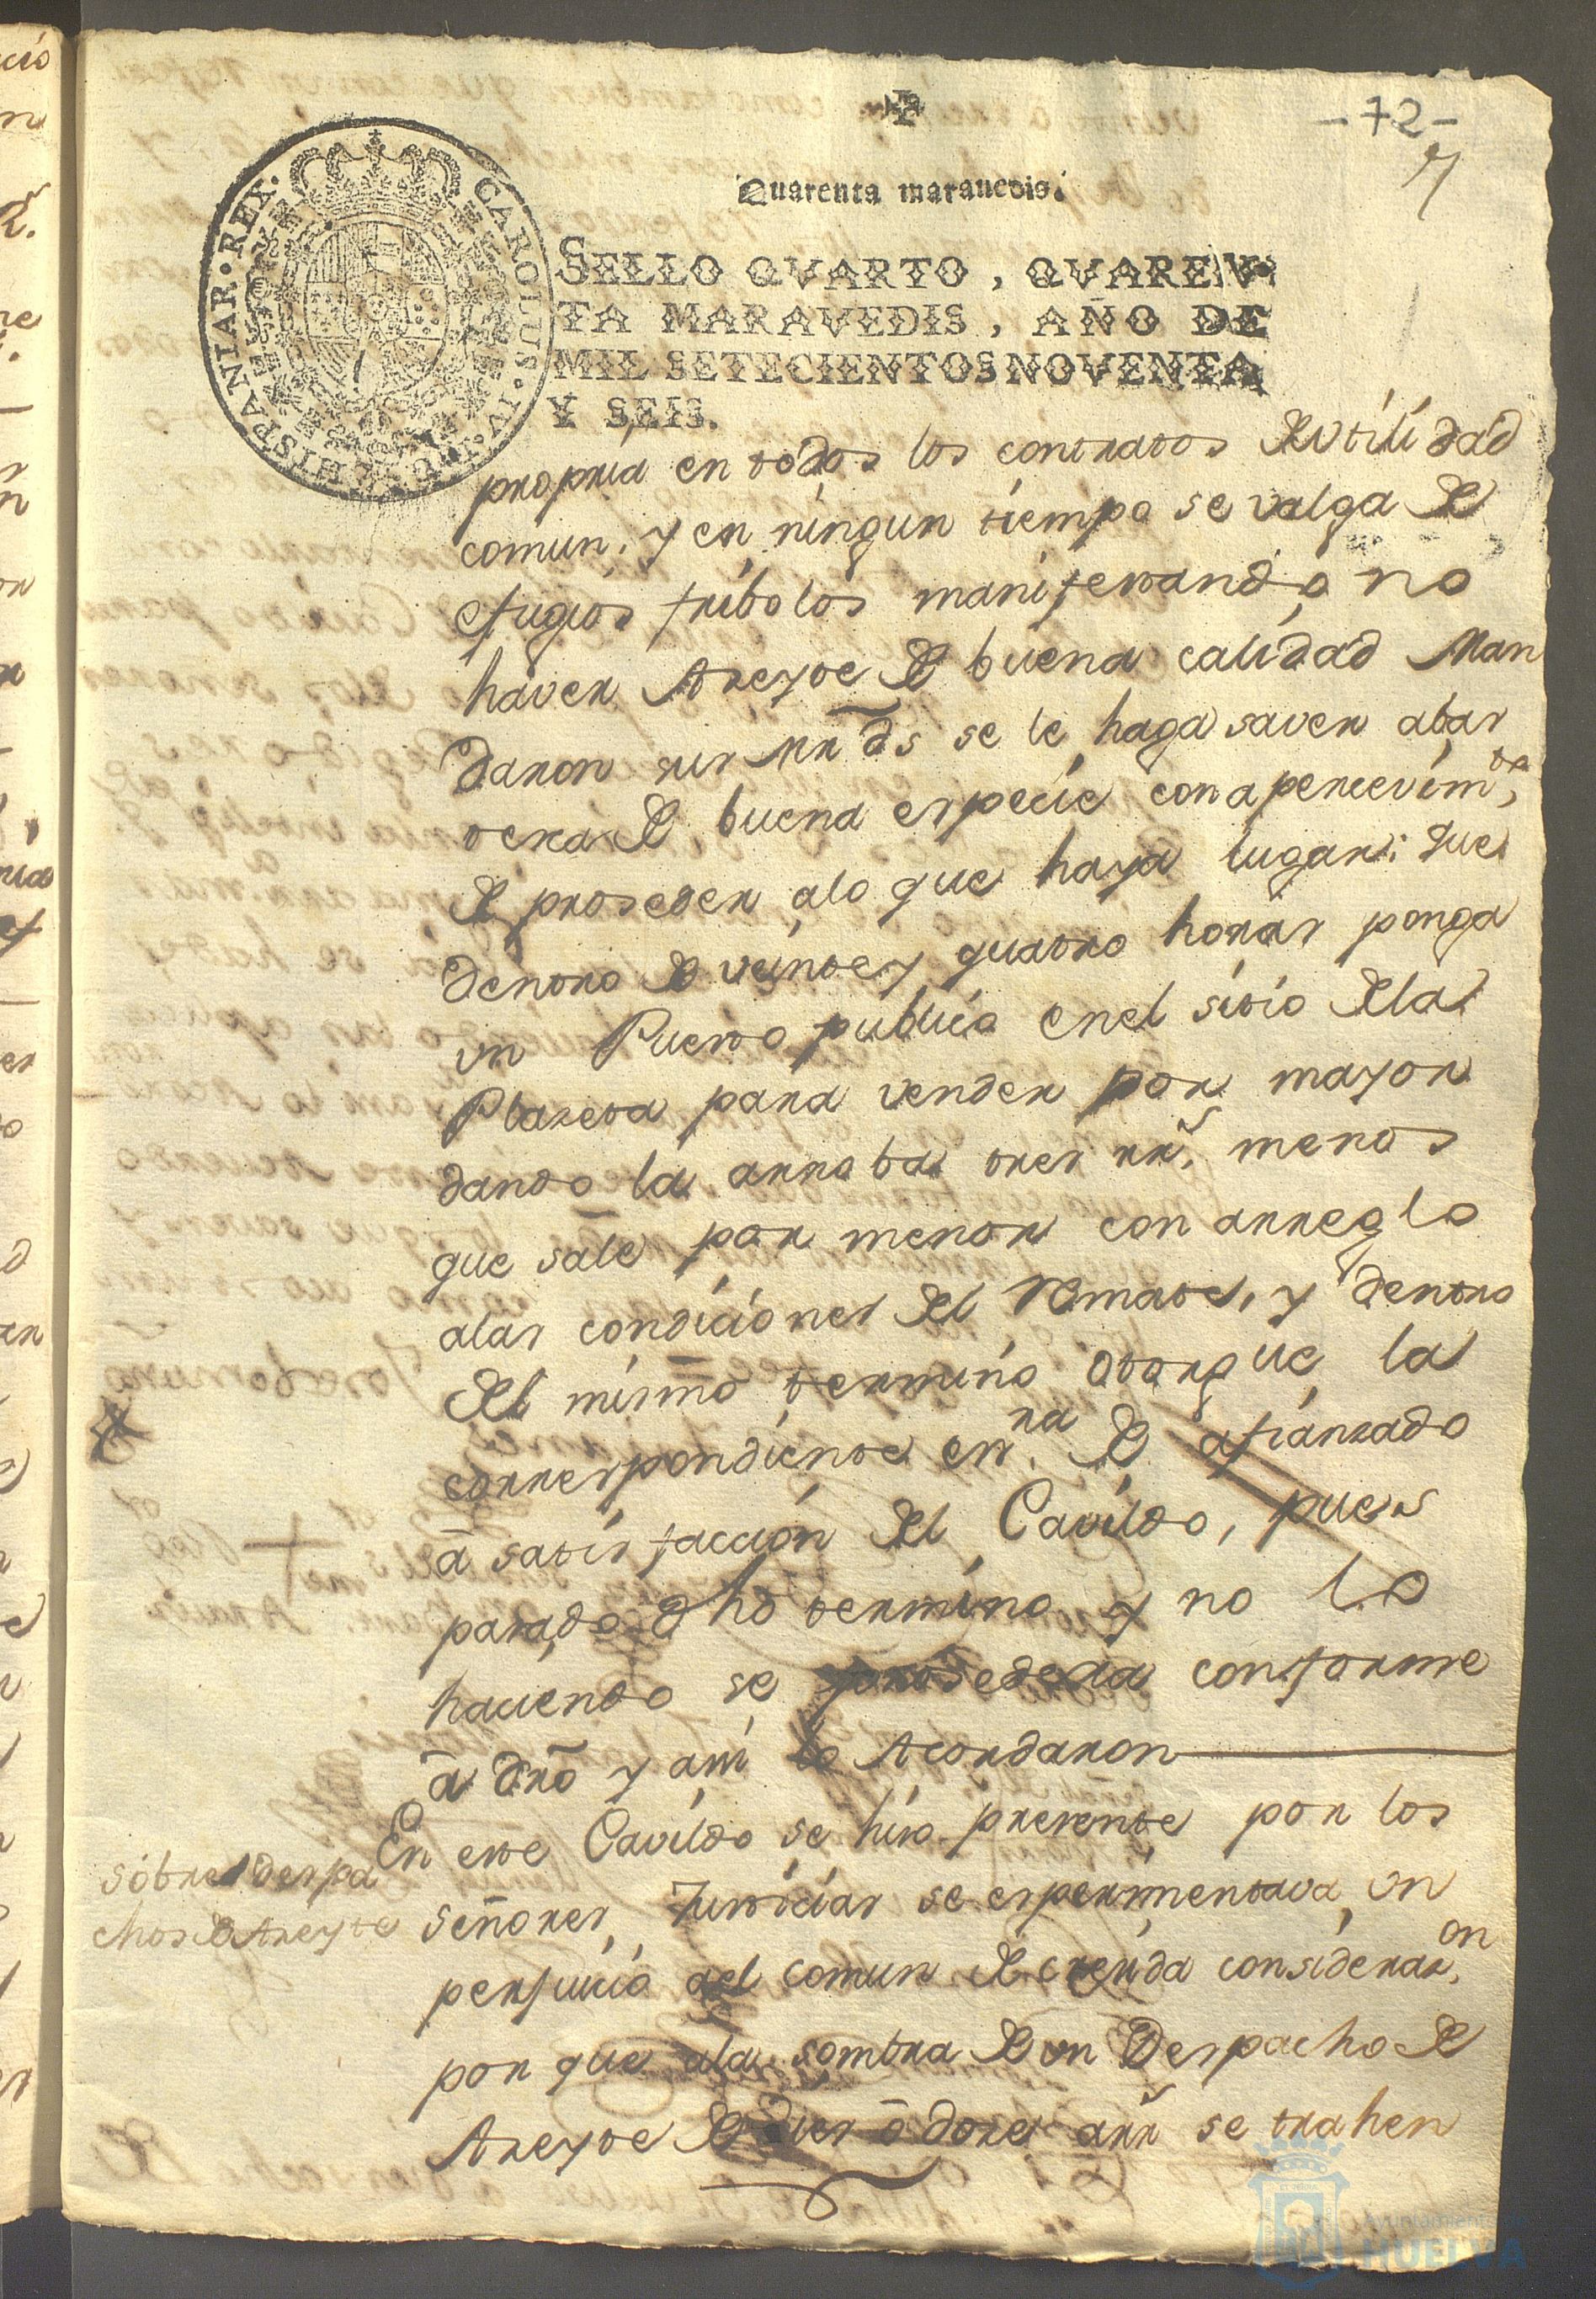 -72-
7
Quarenta marauedis.
SELLO QVARTO, QVAREN-
TA MARAVEDIS, AÑO DE
MIL SETECIENTOS NOVENTA
Y SEIS.
CAROLUS IV D G HISPANIAR REX
propria en todos los contratos de utilidad
comun. y en ningun tiempo se valga de
efugios fribolos manifestando no
haver Azeyte de buena calidad Man
daron sus Mrds se le haga saver abas
tesca de buena especie con apercevimto,
de proseder alo que haya lugar: Que
dentro de veinte y quatro horas ponga
un Puesto publico enel sitio dela
Plazeta para vender por mayor
dando la arroba tres rrs. menos
que sale por menor con arreglo
alas condiciones del Remate, y dentro
del mismo termino otorgue la
correspondiente esra. de afianzado
a satisfaccion del Cavildo, pues
pasado dho termino y no lo
haciendo se prosedera conforme
a dro y asi lo Acordaron
En este Cavildo se hizo presente por los
sobre despa
chos de Azeyte
señores Justicias se esperimentava un
perjuicio del comun de crecida considerazon.
por que ala sombra de un Despacho de
Azeyte de dies ō doze arrs se trahen
Ayuntamiento de
HUELVA